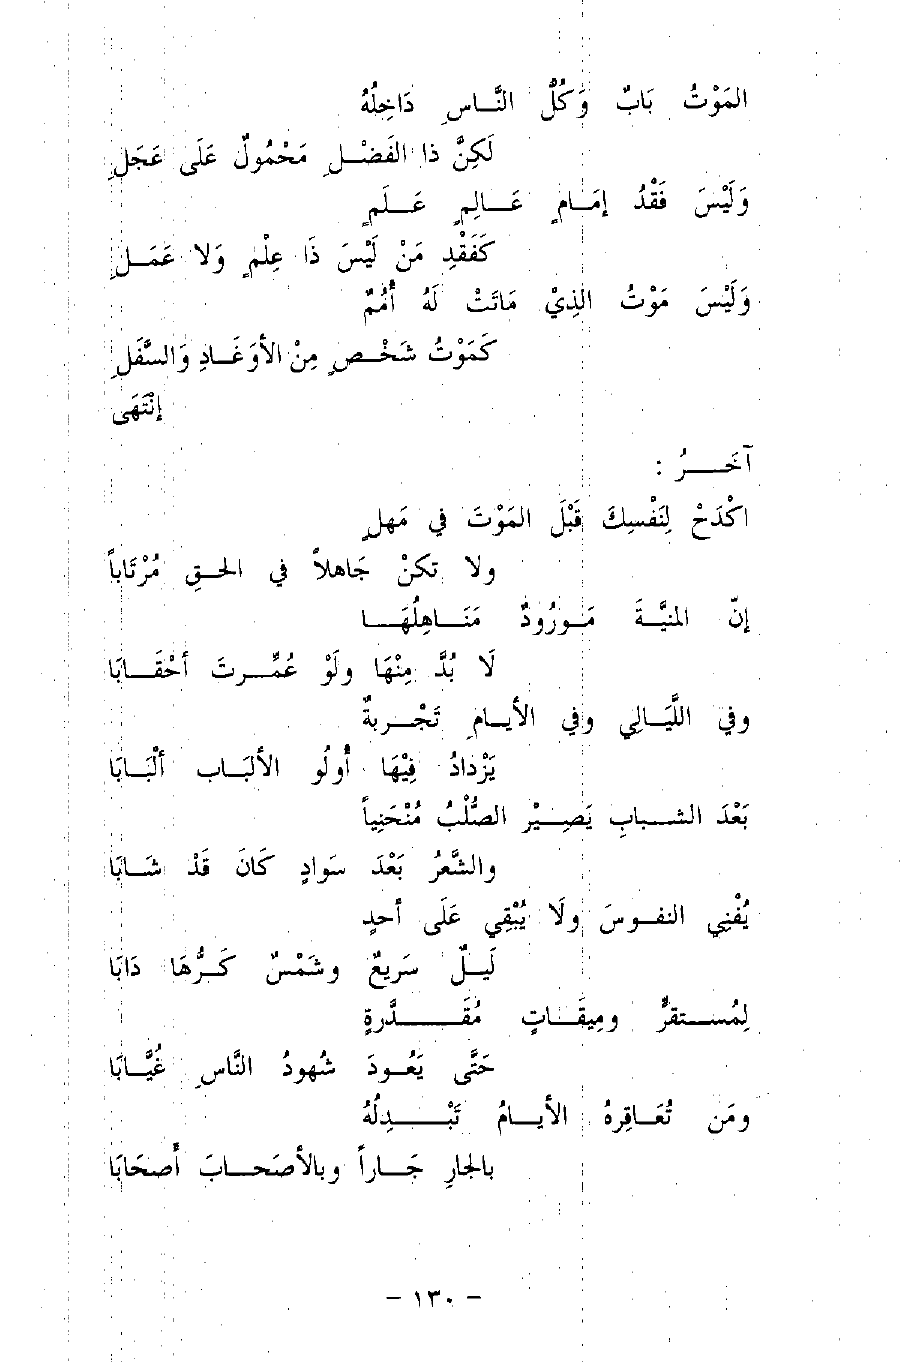 المَوْتُ بَابٌ وَكُلُّ النَّاسِ دَاخِلُهُ
لَكِنَّ ذا الفَضْلِ مَحْمُولٌ عَلَى عَجَلِ
وَلَيْسَ فَقْدُ إمَامٍ عَالِمٍ عَلَمٍ
كَفَقْدِ مَنْ لَيْسَ ذَا عِلْمٍ وَلا عَمَلِ
وَلَيْسَ مَوْتُ الذِيْ مَاتَتْ لَهُ أُمُمٌ
كَمَوْتُ شَخْصٍ مِنْ الأوَغَادِ وَالسَّفَلِ
إنْتَهَى
آخَرُ :
اكْدَحْ لِنَفْسِكَ قَبْلَ المَوْتَ في مَهلٍ
ولا تكنْ جَاهلاً في الحقِ مُرْتَاباً
إنّ المنيَّةَ مَورُودٌ مَنَاهِلُهَا
لَا بُدَّ مِنْهَا ولَوْ عُمِّرتَ أحْقَابَا
وفي اللَّيَالِي وفي الأيامِ تَجْربةٌ
يَزْدادُ فِيْهَا أُولُو الألبَاب ألْبَابَا
بَعْدَ الشبابِ يَصِيْر الصُّلْبُ مُنْحَنِياً
والشَّعْرُ بَعْدَ سَوادٍ كَانَ قَدْ شَابَا
يُفْنِي النفوسَ ولَا يُبْقِي عَلَى أحدٍ
لَيلٌ سَريعٌ وشَمْسٌ كَرُّهَا دَابَا
لِمُستقرٍّ ومِيقَاتٍ مُقَدَّرةٍ
حَتَّى يَعُودَ شُهودُ النَّاسِ غُيَّابَا
ومَن تُعَاقِرهُ الأيامُ تَبْدِلُهُ
بالجارِ جَاراً وبالأصَحابَ أَصحَابَا
- ١٣٠ -